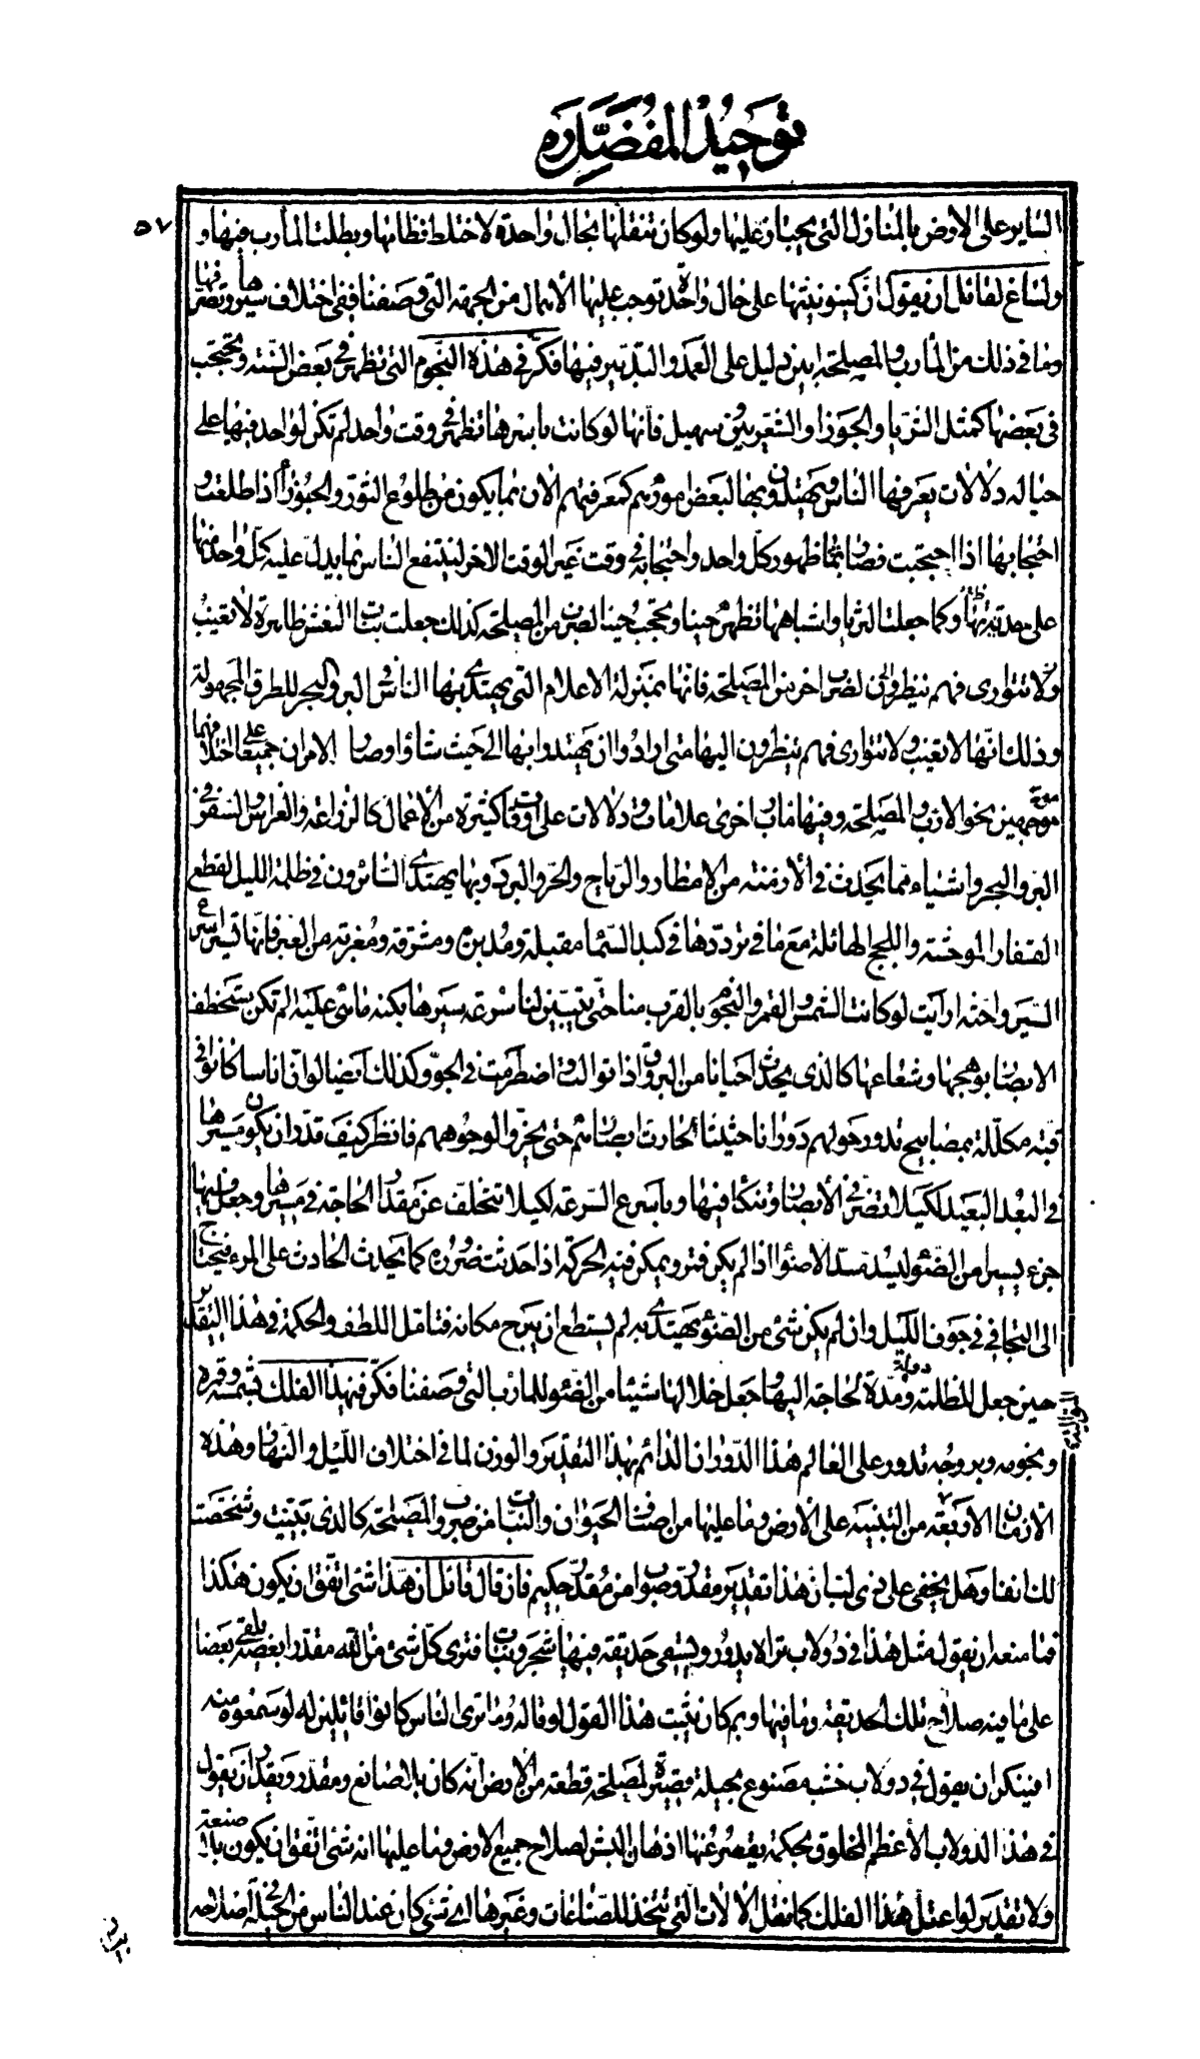 توحيد المفضل ره
٥٧
السايرة على الأرض بالمنازل التى يجتاز عليها ولو كان تنقلها بحال واحدة لاختلط نظامها وبطلت المأرب فيها و
ولساغ لقائل ان يقول ان كينونيتها على حال واحدة توجب عليها الأهمال من الجهة التى وصفنا ففى اختلاف سيرها وتصرفها
وما فى ذلك من المأرب والمصلحة ابين دليل على العمد والتدبير فيها فكر فى هذه النجوم التى تظهر فى بعض السنة وتحتجب
فى بعضها كمثل الثريا والجوزا والشعريين وسهيل فانها لو كانت باسرها تظهر فى وقت واحد لم تكن لواحد فيها على
حياله دلالات يعرفها الناس ويهتدون بها لبعض امورهم كمعرفتهم الان بما يكون من طلوع الثور والجوزا اذا طلعت و
احتجابها اذا احتجبت فصار بما ظهور كل واحد واحتجابه فى وقت غير الوقت الاخر لينتفع الناس بما يدل عليه كل واحد منهما
على حدته وكما جعلت الثريا واشباهها تظهر حينا وتحجب حينا لضرب من المصلحة كذلك جعلت بنات النعش ظاهرة لا تغيب
ولا تتوارى فهم ينظرون لضرب اخر من المصلحة فانها بمنزلة الاعلام التى يهتدى بها الناس فى البر والبحر للطرق المجهولة
وذلك انها لا تغيب ولا تتوارى فهم ينظرون اليها متى ارادوا ان يهتدوا بها الى حيث شاؤا وصار الامران جميعا على اختلافهما
موجهين نحو الارب والمصلحة وفيها مأرب اخرى علامات ودلالات على اوقات كثيرة من الأعمال كالزراعة والغراس والسفر فى
البر والبحر واشياء مما يحدث فى الأزمنة من الامطار والرياح والحر والبرد وبها يهتدى السائرون فى ظلمة الليل لقطع
القفار الموحشة واللجج الهائلة مع ما فى ترددها فى كبد السماء مقبلة ومدبرة ومشرقة ومغربة من العبر فانها تسير اسرع
السير واحثه ارايت لو كانت الشمس والقمر والنجوم بالقرب منا حتى يتبين لنا سرعة سيرها بكنه ما هى عليه الم تكن ستخطف
الابصار بوهجها وشعاعها كالذى يحدث احيانا من البروق اذا توالت واضطرمت فى الجو وكذلك ايضا لو ان اناسا كانوا فى
قبة مكللة بمصابيح تدور حولهم دورانا حثيثا لحارت ابصارهم حتى يخروا لوجوههم فانظر كيف قدر ان يكون مسيرها
فى البعد البعيد لكيلا تضر فى الأبصار وتنكأ فيها وباسرع السرعة لكيلا تتخلف عن مقدار الحاجة فى مسيرها وجعل فيها
جزء يسيرا من الضوء ليسد مسد الاضواء اذا لم يكن قمر ويمكن فيه الحركة اذا حدثت ضرورة كما يحدث الحادث على المرء فيحتاج
الى التجافى فى جوف الليل وان لم يكن شئ من الضوء يهتدى به لم يستطع ان يبرح مكانه فتأمل اللطف والحكمة فى هذا التقدير
حين جعل للظلمة دولة ومدة لحاجة اليها وجعل خلالها شيئا من الضوء للمارب التى وصفنا فكر فى هذا الفلك بشمسه وقمره
ونجومه وبروجه تدور على العالم هذا الدوران الدائم بهذا التقدير والوزن لما فى اختلاف الليل والنهار وهذه
الأزمان الاربعة من التنبيه على الأرض وما عليها من اصناف الحيوان والنبات من ضروب المصلحة كالذى بينت وشخصت
لك انفا وهل يخفى على ذى لب ان هذا تقدير مقدر وصواب من مقدر حكيم فان قال قائل ان هذا شئ اتفق ان يكون هكذا
فما منعه ان يقول مثل هذا فى دولاب تراه يدور ويسقى حديقة فيها شجر ونبات فترى كل شئ من الته مقدرا بعضه يلقى بعضا
على ما فيه صلاح تلك الحديقة وما فيها وبم كان يثبت هذا القول لو قاله وما ترى الناس كانوا قائلين له لو سمعوه منه
افينكر ان يقول فى دولاب خشب مصنوع بحيلة قصيرة لمصلحة قطعة من الارض انه كان بلا صانع ومقدر ويقدر ان يقول
فى هذا الدولاب الأعظم المخلوق بحكمة يقصر عنها اذهان البشر لصلاح جميع الارض وما عليها انه شئ اتفق ان يكون بلا صنعة
ولا تقدير لو اعتل هذا الفلك كما تعتل الالات التى تتخذ للصناعات وغيرها اى شئ كان عند الناس من الحيلة فى اصلاحه